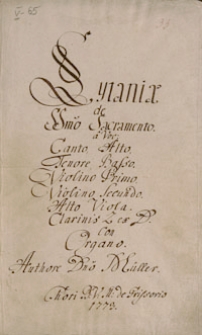 V-85
Lytaniæ
de
Ssmo Sacramento.
a Voc:
Canto Alto
Tenore Basso.
Violino Primo.
Violino Secundo.
Alto Viola.
Clarinis 2 ex D.
Con
Organo.
Authore Dno Müller.
Chori B.V.M. de
1773.